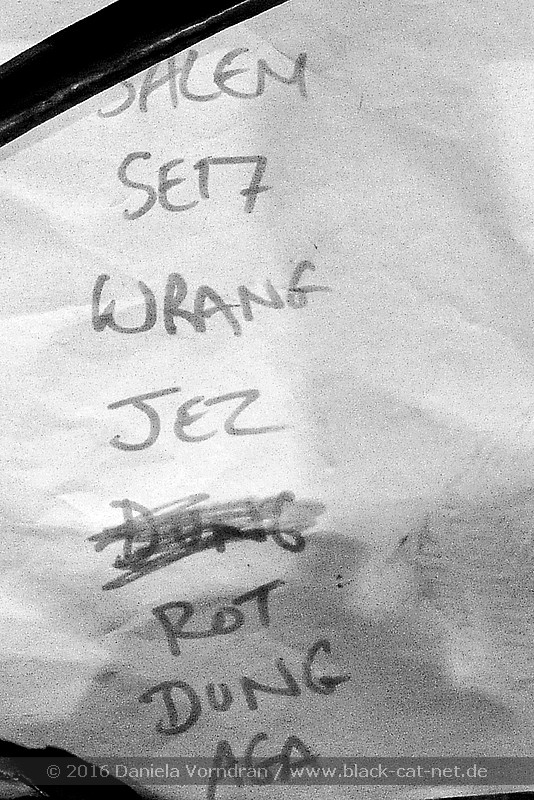 SALEM
SEI7
WRANG
JEZ
DUNG
ROT
DUNG
AGA
© 2016 Daniela Vorndran / www.black-cat-net.de